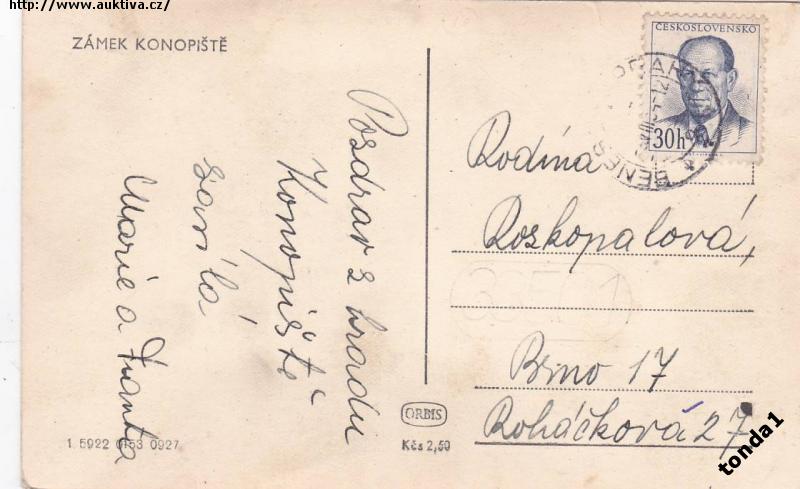 http://www.auktiva.cz/
ZÁMEK KONOPIŠTĚ
Pozdrav z hradu
Konopiště
zasílá
Marie a Franta
1 5922 0153 0927
ORBIS
Kčs 2,50
ČESKOSLOVENSKO
30h
BENEŠ
Rodina
Roskopalová,
Brno 17
Roháčková 27
tonda1